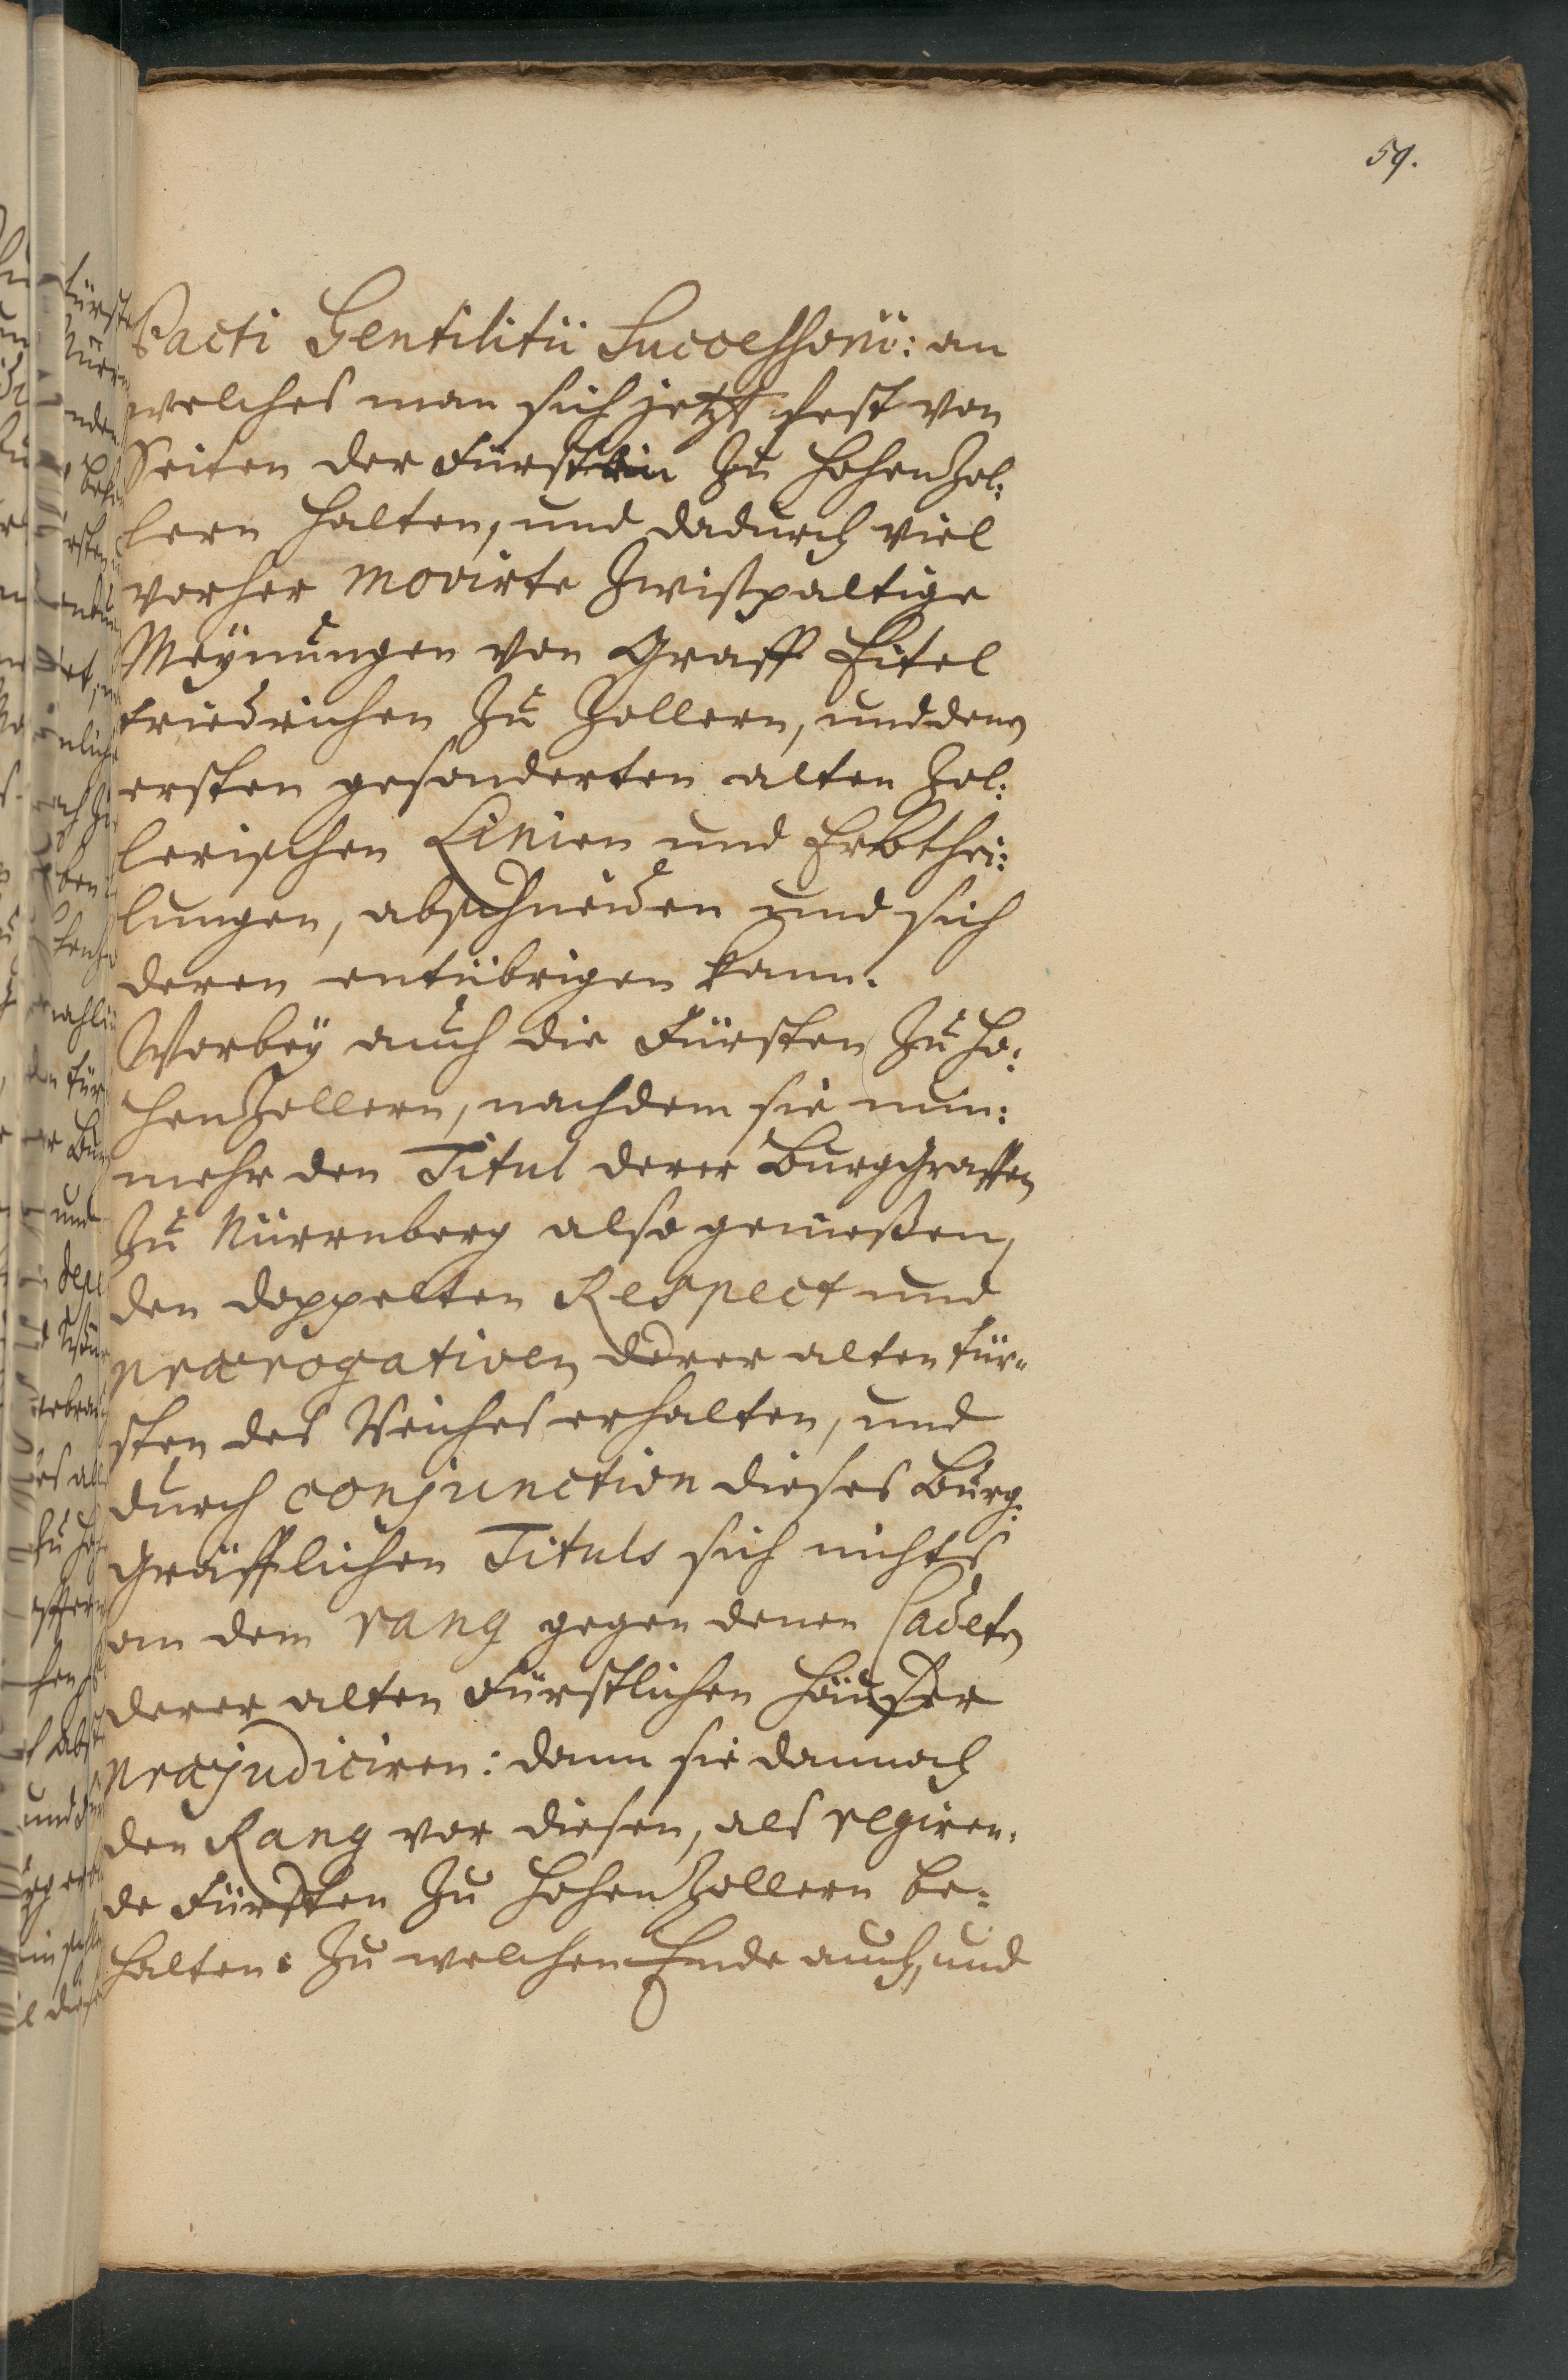 59.
Pacti Gentilitii Successorii: an
welches man sich jetzt fest von
Seiten der Fürsten zu Hohenzol:
lern halten, und dadurch viel
vorher movirte Zwispaltige
Meÿnungen von Graff Eitel
Friedrichen zu Zollern, und denen
ersten gesonderten alten Zol:
lerischen Linien und Erbthei:
lungen, abschneiden und sich
deren entübrigen kann.
Worbeÿ auch die Fürsten zu Ho:
henzollern, nachdem sie nun:
mehr den Titul derer Burggraffen
zu Nürrnberg also geniessen,
den doppelten Respect und
præerogativen derer alten Für„
sten des Reiches erhalten, und
durch conjunction dieses Burg:
gräfflichen Tituls sich nichts
an dem rang gegen denen Cadeten
derer alten Fürstlichen Häußer
præjudiciren: dann sie dannoch
den Rang vor diesen, als regiren:
de Fürsten zu Hohenzollern be:
halten: Zu welchem Ende auch, und